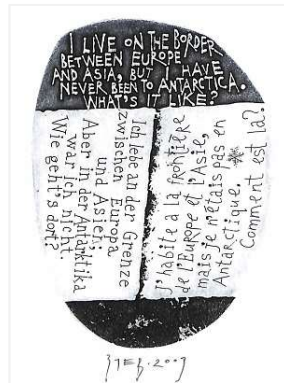 I LIVE ON THE BORDER
BETWEEN EUROPE
AND ASIA, BUT I HAVE
NEVER BEEN TO ANTARCTICA.
WHAT'S IT LYKE?
Ich lebe an der Grenze
zwischen Europa
und Asien,
Aber in der Antarktika
war ich nicht.
Wie geht's dort?
J'habite à la frontière
de l'Europe et l'Asie,
mais je n'étais pas en
Antarctique.
Comment est la?
2009